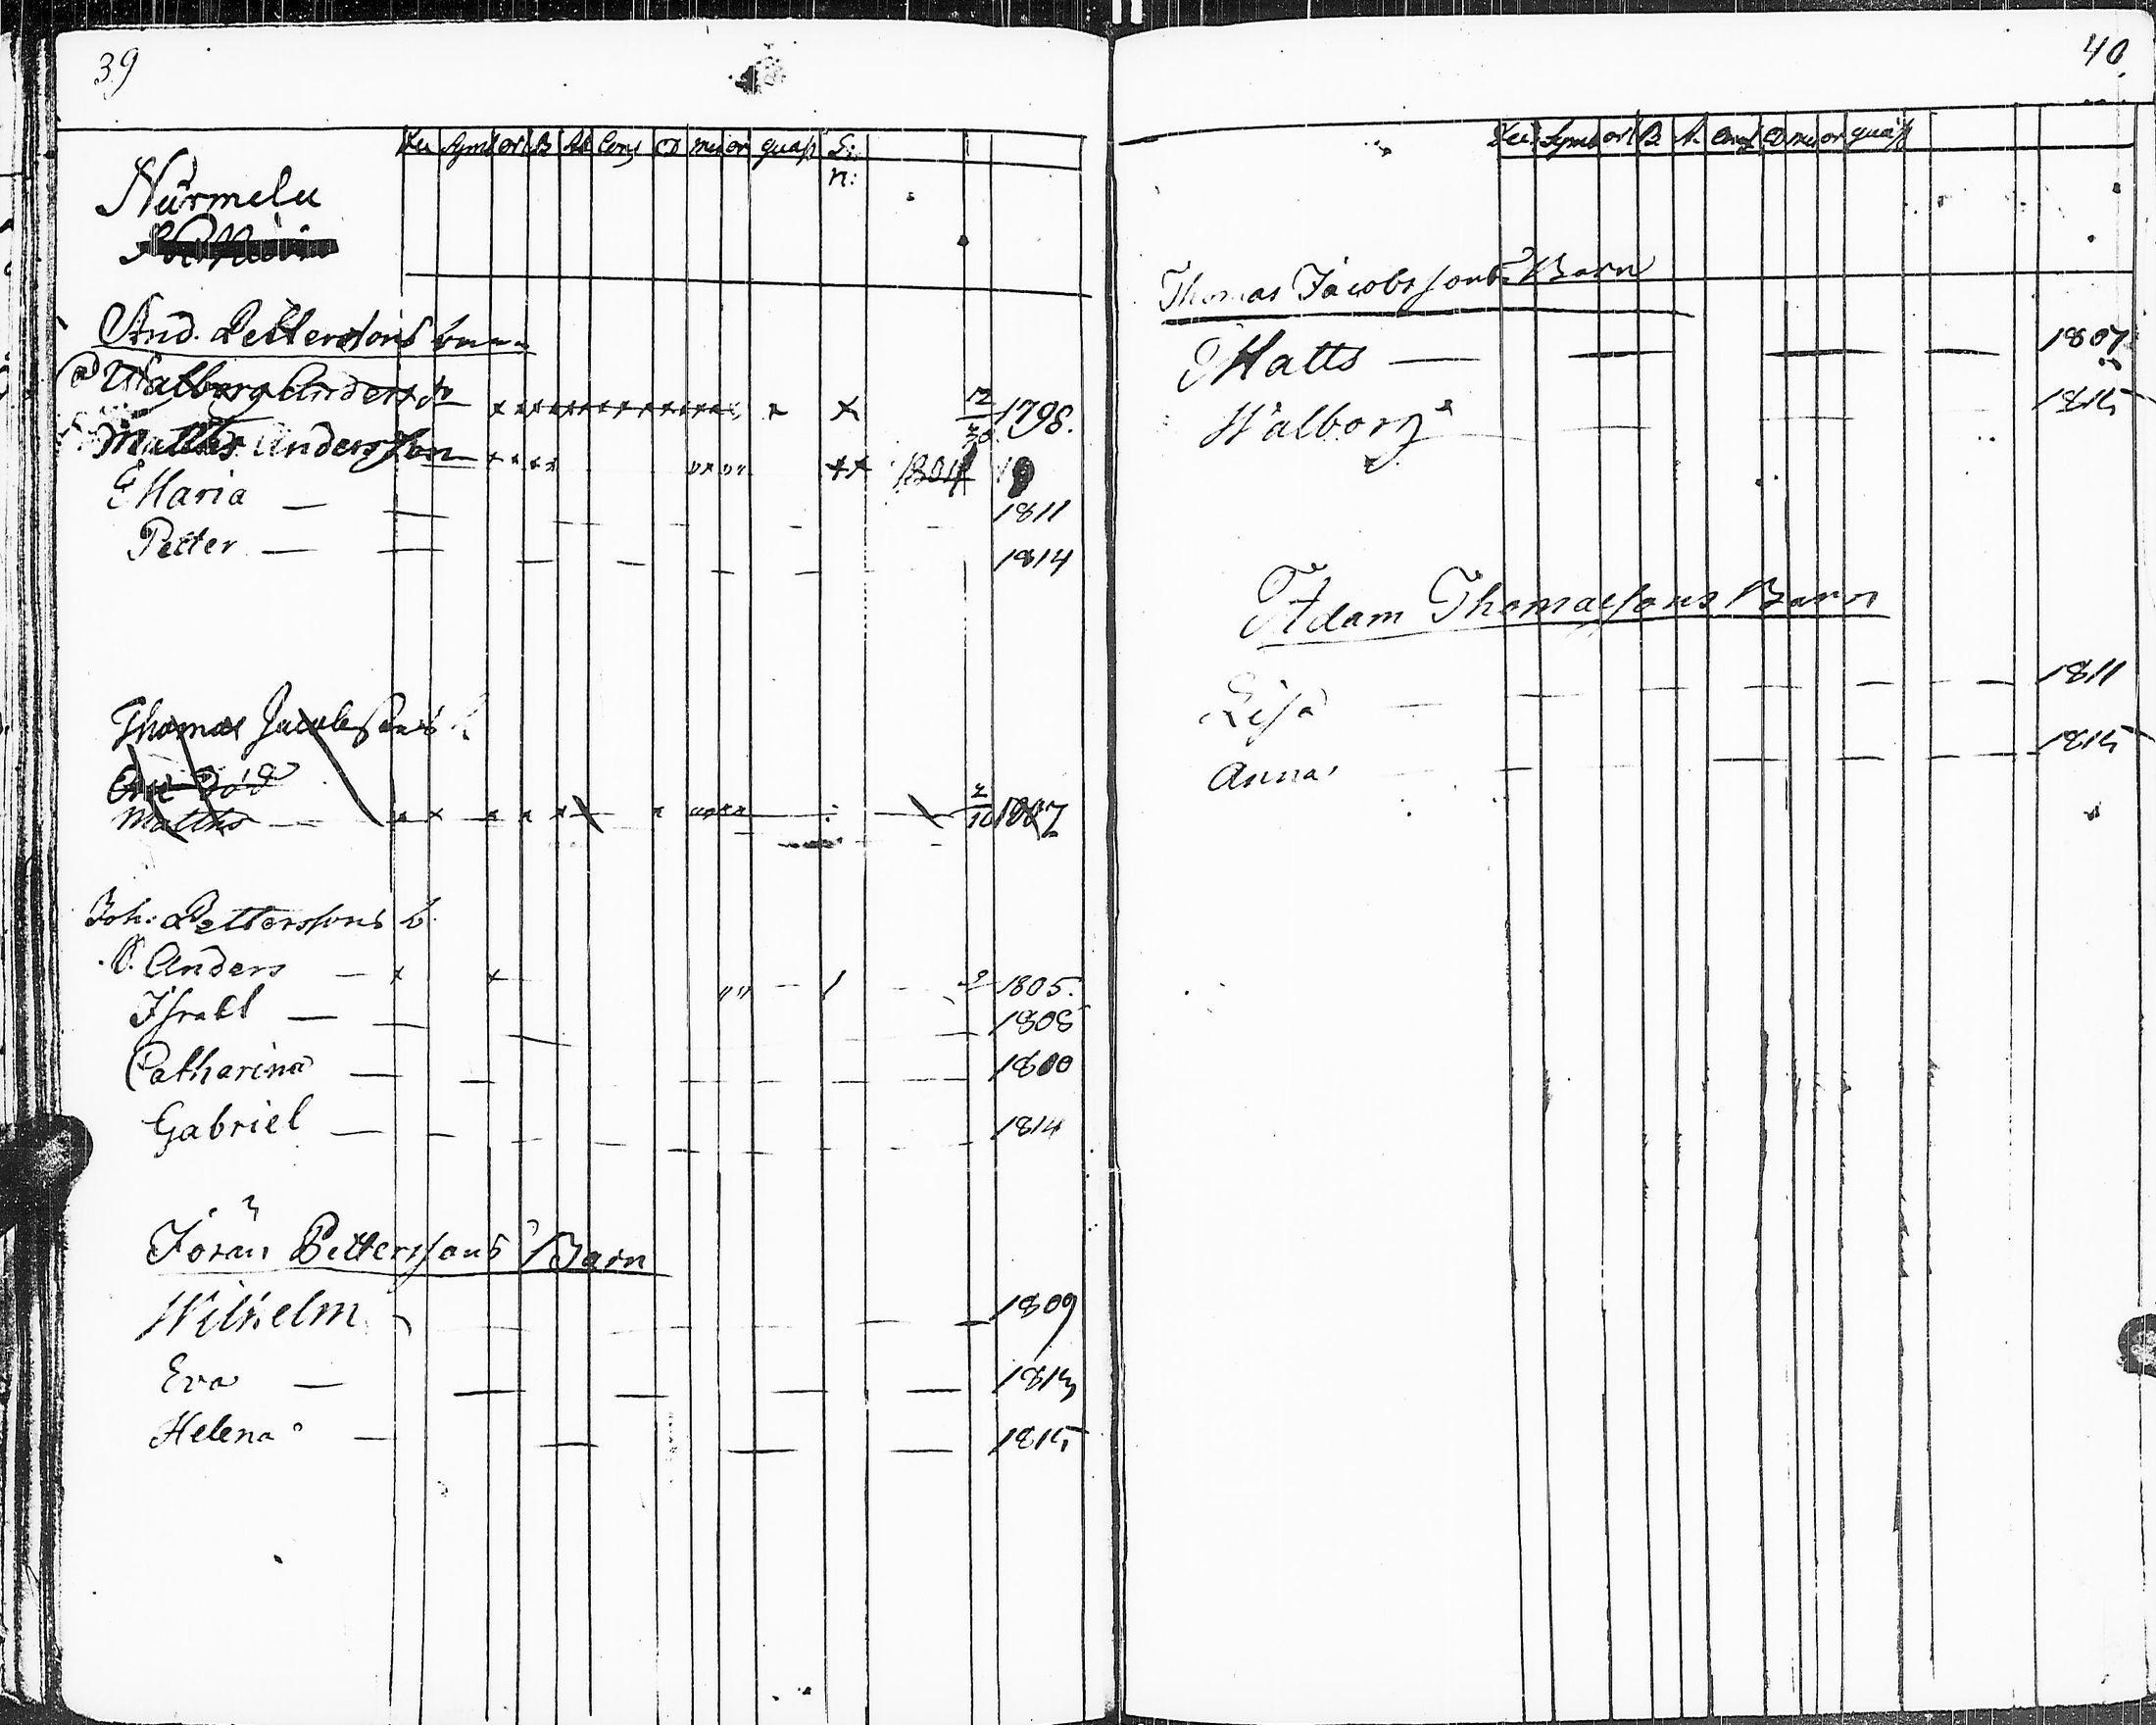 39
Dec Symb or B A Conf D mu or quæst S: n:
Nurmelu
And. Pettersons barn
Walborg Andersdr 12/30 1798.
Matths Andersson 1804
Maria — 1811
Petter — 1814
Thomas Jacobssons b
död
Matths — 2/10 1807
Joh: Petterssons b.
Anders — 1805.
Israel — 1808
Catharina — 1810
Gabriel — 1814
Jöran Petterssons Barn
Wilhelm 1809
Eva — 1813
Helena — 1815
40.
Dec Symb or B. A. Conf D mu or quæst
Thomas Jacobssons Barn
Matts — 1807
Walborg 1815
Adam Thomassons Barn
Lisa — 1811
Anna 1815